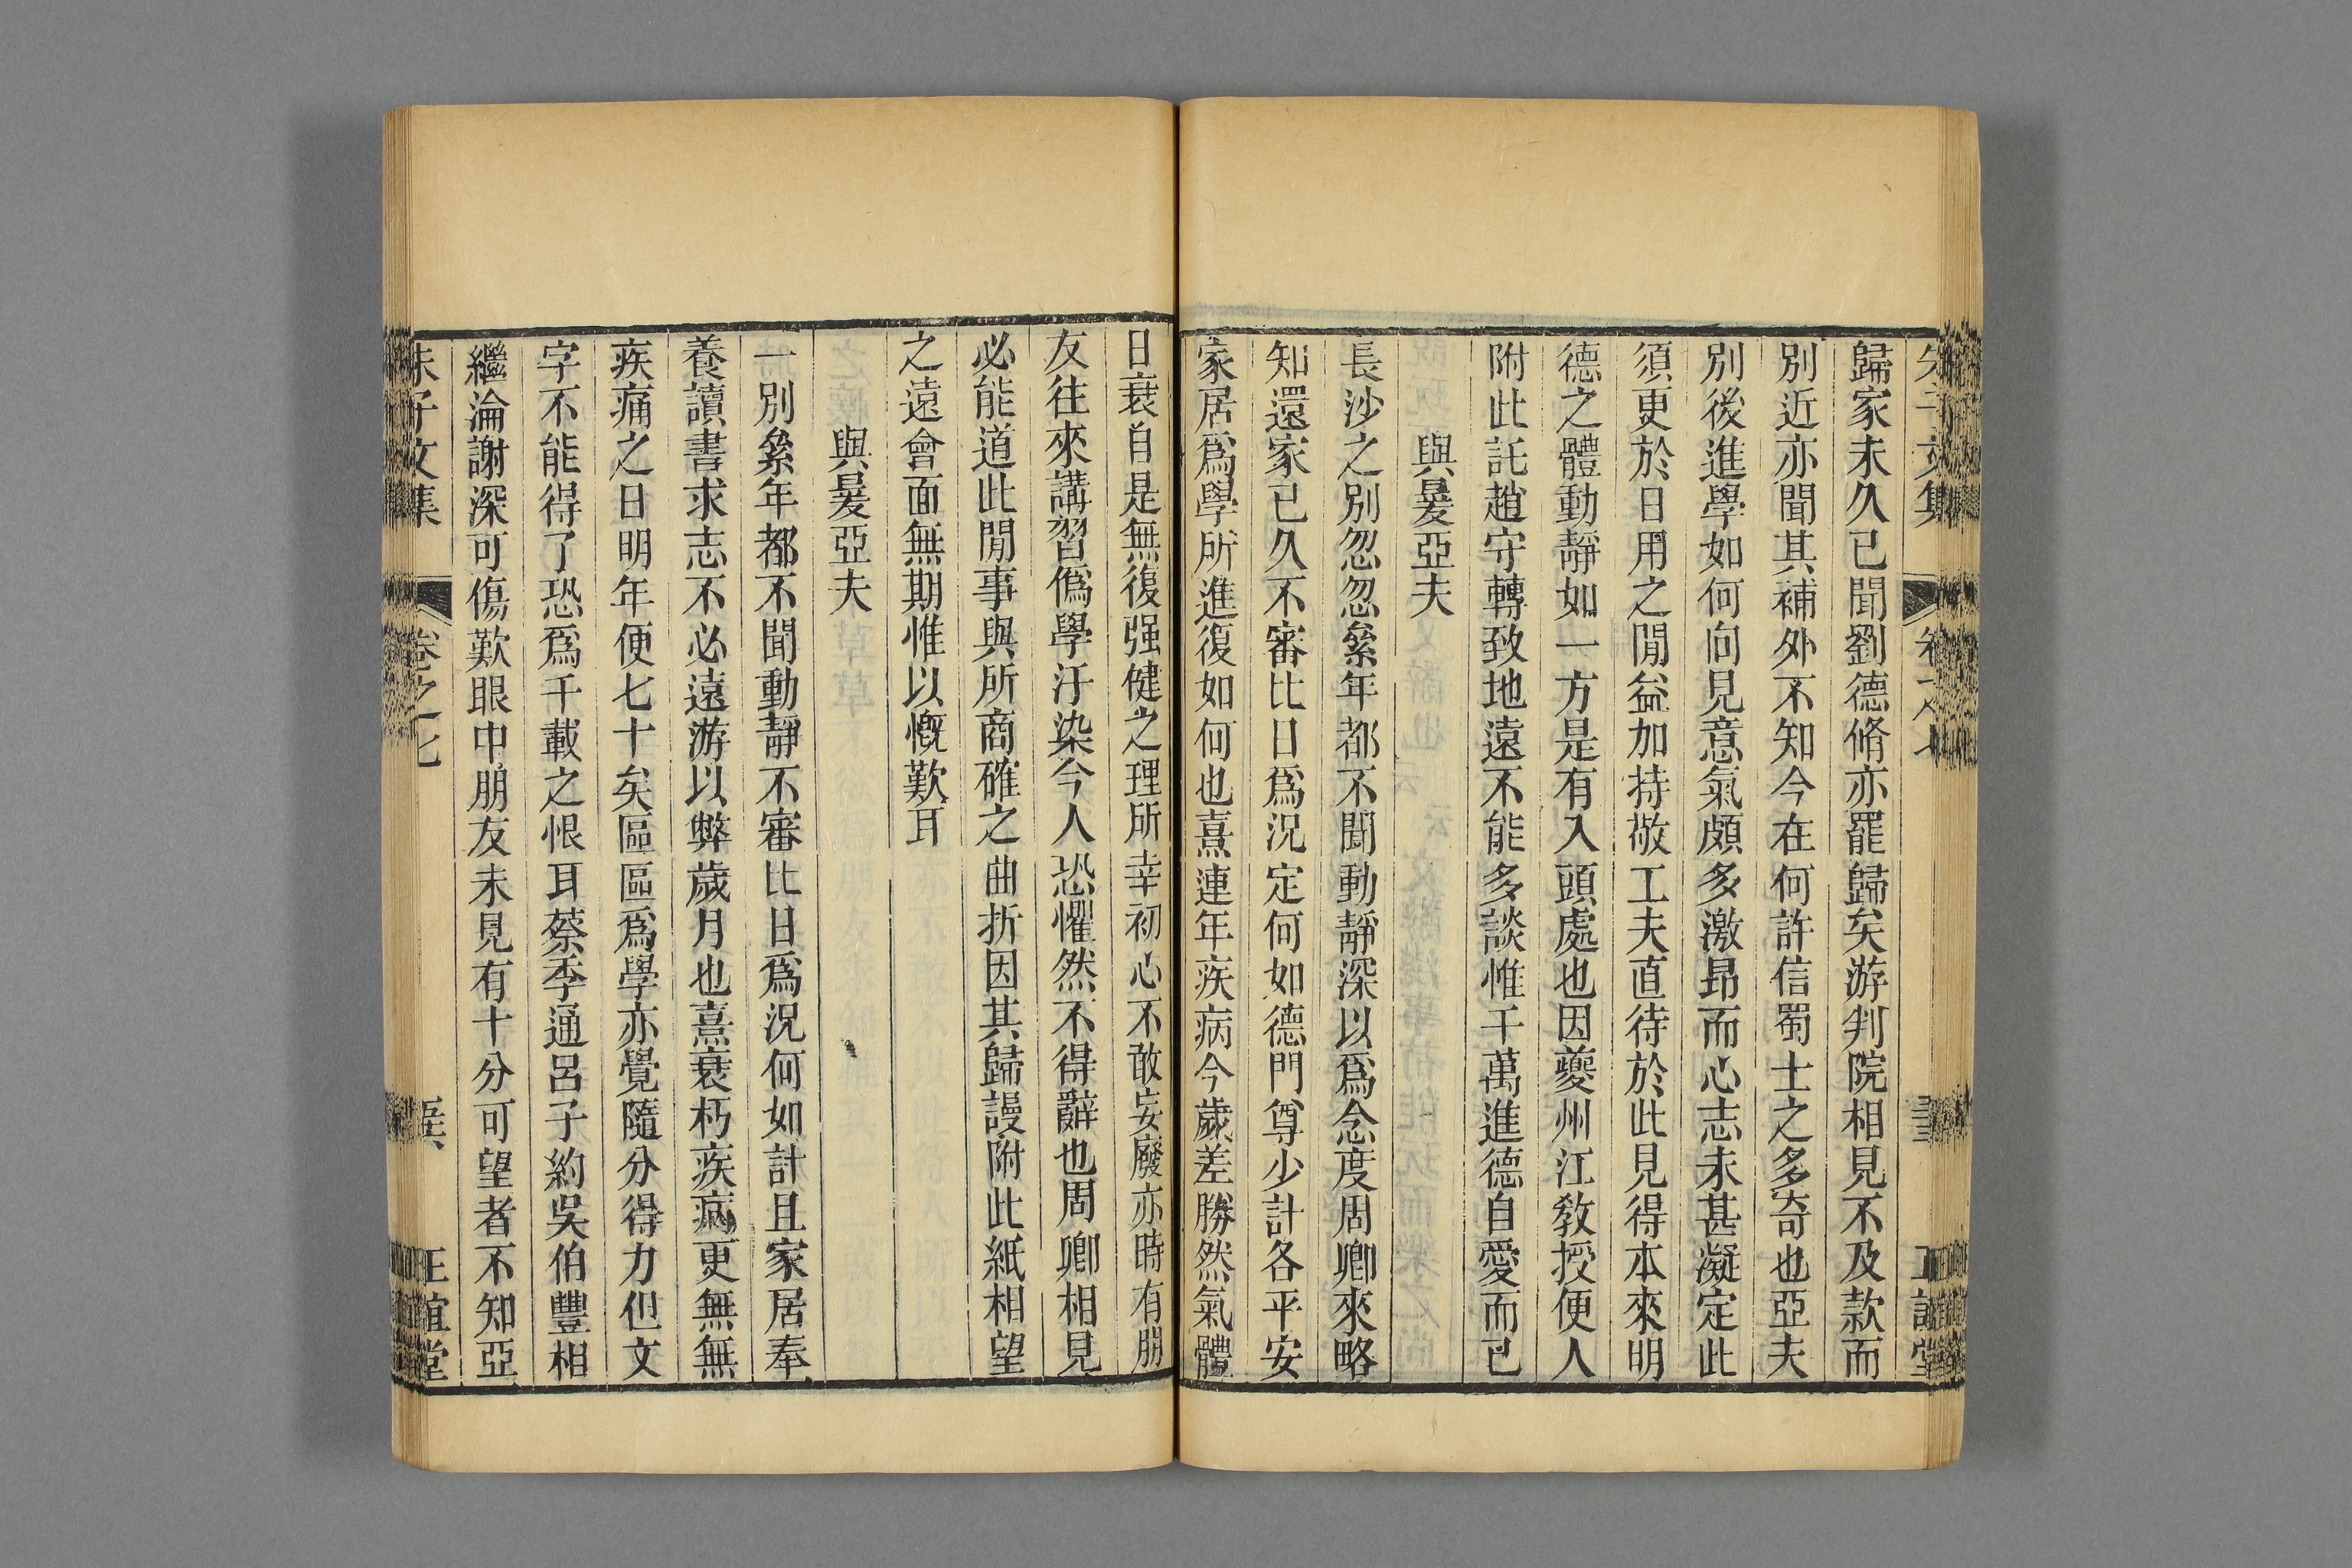 歸家未久已聞劉德脩亦罷歸矣游判院相見不及款而
別近亦聞其補外不知今在何許信蜀士之多奇也亞夫
別後進學如何向見意氣頗多激昂而心志未甚凝定此
須更於日用之閒益加持敬工夫直待於此見得本來明
德之體動靜如一方是有入頭處也因夔州江教授便人
附此託趙守轉致地遠不能多談惟千萬進德自愛而已
與㬊亞夫
長沙之別忽忽絫年都不聞動靜深以爲念度周卿來略
知還家已久不審比日爲況定何如德門尊少計各平安
家居爲學所進復如何也熹連年疾病今歲差勝然氣體
日衰自是無復强健之理所幸初心不敢妄廢亦時有朋
友往來講習僞學汙染今人恐懼然不得辭也周卿相見
必能道此閒事與所商確之曲折因其歸謾附此紙相望
之遠會面無期惟以慨歎耳
與㬊亞夫
一別絫年都不聞動靜不審比日爲況何如計且家居奉
養讀書求志不必遠游以弊歲月也熹衰朽疾病更無無
疾痛之日明年便七十矣區區爲學亦覺隨分得力但文
字不能得了恐爲千載之恨耳蔡季通呂子約吳伯豐相
繼淪謝深可傷歎眼中朋友未見有十分可望者不知亞
朱子文集 卷之七 正誼堂